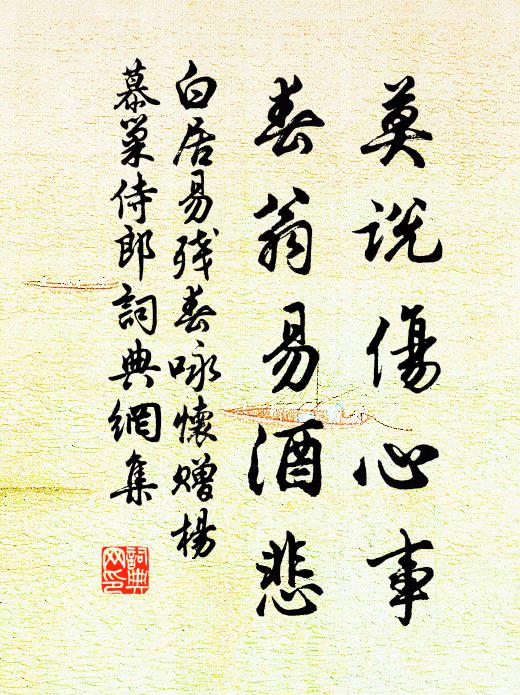 莫说傷心事
春翁易酒悲
白居易残春咏懷赠楊
慕巢侍郎詞典網集
詞典网印